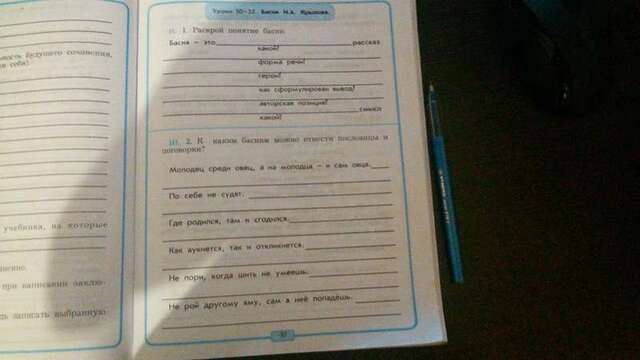 ность будущего сочинения,
для себя)
учебника, на которые
при написании заклю-
дь записать выбранную
Уроки 30-32. Басни И.А. Крылова.
1. Раскрой понятие басни.
Басня - это рассказ
какой?
форма речи?
герои?
как сформулирован вывод?
авторская позиция? смысл
какой?
2. К каким басням можно отнести пословицы и
поговорки?
Молодец среди овец, а на молодца - и сам овца.
По себе не судят.
Где родился, там и сгодился.
Как аукнется, так и откликнется.
Не пори, когда шить не умеешь.
Не рой другому яму, сам в неё попадёшь.